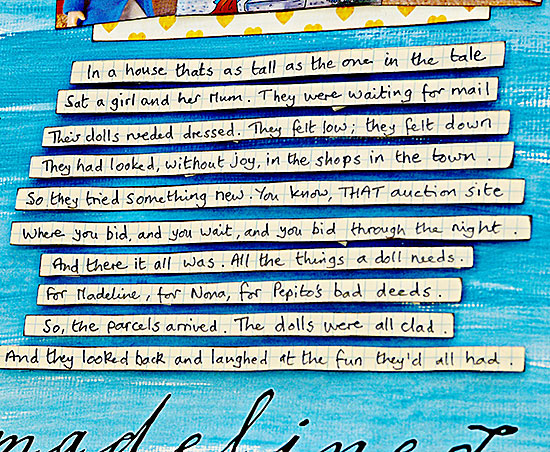 In a house thats as tall as the one in the tale
Sat a girl and her Mum. They were waiting for mail
Their dolls needed dressed. They felt low; they felt down
They had looked, without joy, in the shops in the town.
So they tried something new. You know, THAT auction site
Where you bid, and you wait, and you bid through the night.
And there it all was. All the things a doll needs.
For Madeline, for Nona, for Pepito's bad deeds.
So, the parcels arrived. The dolls were all clad.
And they looked back and laughed at the fun they'd all had.
madeline